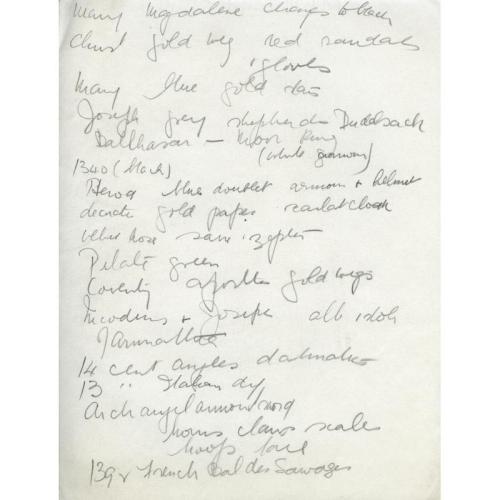 Mary Magdalene changes to black
Christ gold wig red sandals
gloves
Mary blue gold stars
Joseph grey shepherds Dudelsack
Balthasar — Moor King
(white garment)
1340 (black)
Herod blue doublet armour + helmet
decorate gold paper scarlet cloak
hose
Pilate green
Coventry apostles gold wigs
Nicodemus + Joseph alb stole
14 cent angles dalmatic
13 " Italian
Archangel armour sword
horns claws scales
hoofs
139 French Bal des Sauvages